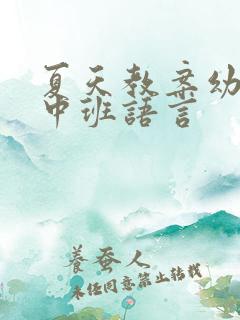 夏天教案幼
中班語言
養蚕人
未经同意禁止转载